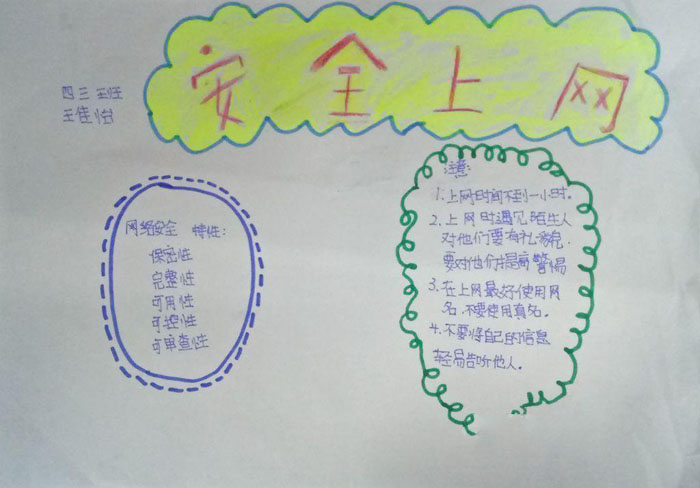 安全上网
四三班
王佳怡
网络安全 特性：
保密性
完整性
可用性
可控性
可审查性
注意：
1.上网时间不到一小时。
2.上网时遇见陌生人
对他们要有礼貌，
要对他们提高警惕
3.在上网最好使用网
名，不要使用真名。
4.不要将自己的信息
轻易告听他人。